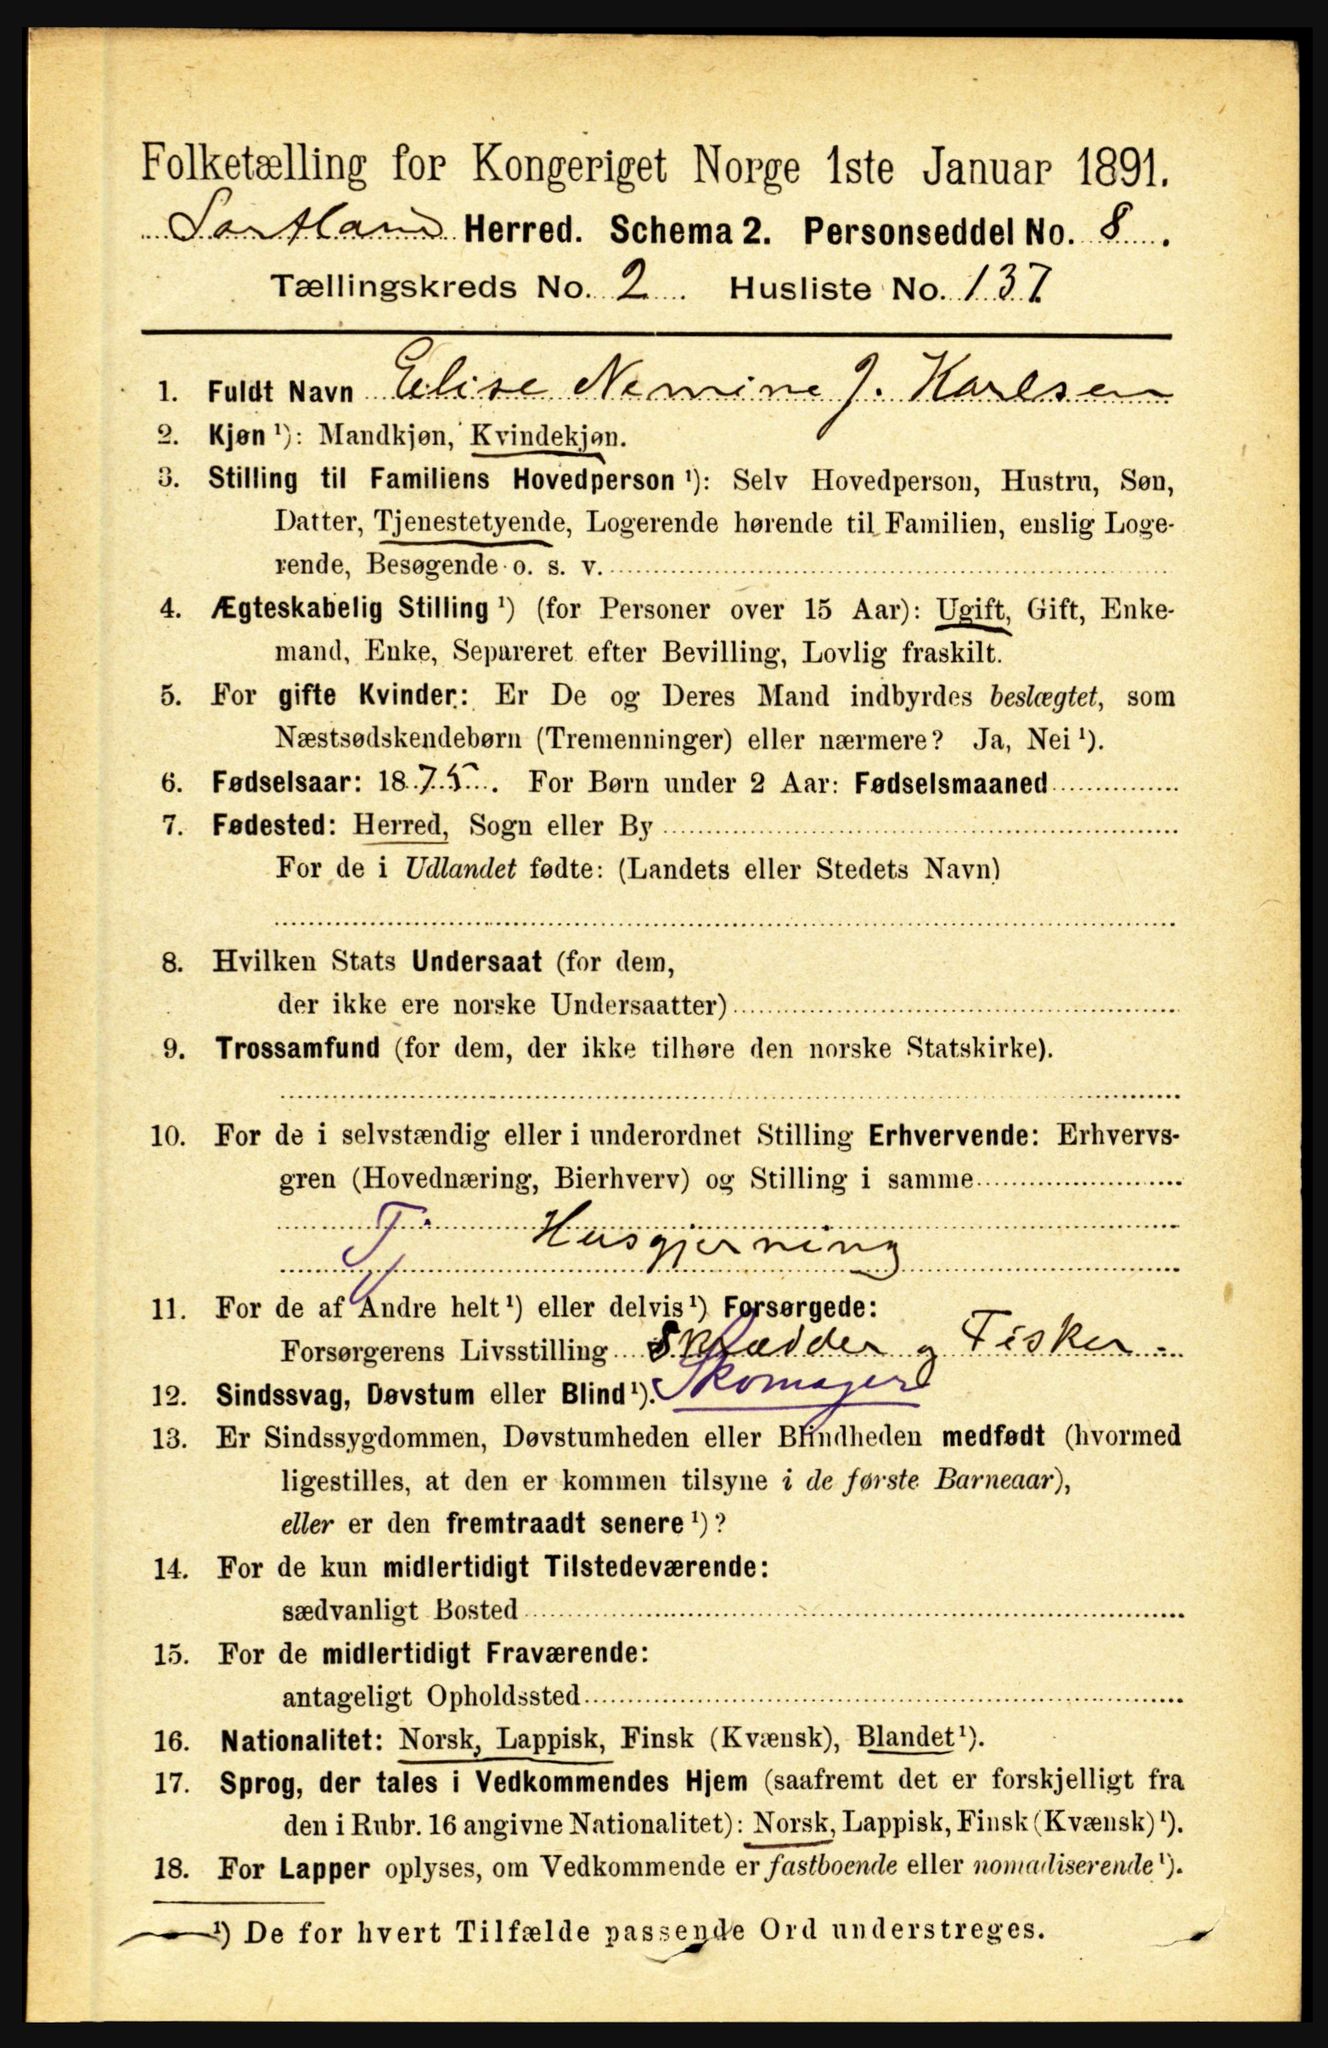 Folketælling for Kongeriget Norge 1ste Januar 1891.
Sortland Herred. Schema 2. Personseddel No. 8.
Tællingskreds No. 2. Husliste No. 137
1. Fuldt Navn Elise Nemine J. Karlsen
2. Kjøn ¹): Mandkjøn, Kvindekjøn.
3. Stilling til Familiens Hovedperson ¹): Selv Hovedperson, Hustru, Søn,
Datter, Tjenestetyende, Logerende hørende til Familien, enslig Loge-
rende, Besøgende o. s. v.
4. Ægteskabelig Stilling ¹) (for Personer over 15 Aar): Ugift, Gift, Enke-
mand, Enke, Separeret efter Bevilling, Lovlig fraskilt.
5. For gifte Kvinder: Er De og Deres Mand indbyrdes beslægtet, som
Næstsødskendebørn (Tremenninger) eller nærmere? Ja, Nei ¹).
6. Fødselsaar: 1875. For Børn under 2 Aar: Fødselsmaaned
7. Fødested: Herred, Sogn eller By
For de i Udlandet fødte: (Landets eller Stedets Navn)
8. Hvilken Stats Undersaat (for dem,
der ikke ere norske Undersaatter)
9. Trossamfund (for dem, der ikke tilhøre den norske Statskirke).
10. For de i selvstændig eller i underordnet Stilling Erhvervende: Erhvervs-
gren (Hovednæring, Bierhverv) og Stilling i samme
Tj Husgjerning
11. For de af Andre helt ¹) eller delvis ¹) Forsørgede:
Forsørgerens Livsstilling Skrædder og Fisker
12. Sindssvag, Døvstum eller Blind ¹). Skomager
13. Er Sindssygdommen, Døvstumheden eller Blindheden medfødt (hvormed
ligestilles, at den er kommen tilsyne i de første Barneaar),
eller er den fremtraadt senere ¹)?
14. For de kun midlertidigt Tilstedeværende:
sædvanligt Bosted
15. For de midlertidigt Fraværende:
antageligt Opholdssted
16. Nationalitet: Norsk, Lappisk, Finsk (Kvænsk), Blandet ¹).
17. Sprog, der tales i Vedkommendes Hjem (saafremt det er forskjelligt fra
den i Rubr. 16 angivne Nationalitet): Norsk, Lappisk, Finsk (Kvænsk) ¹).
18. For Lapper oplyses, om Vedkommende er fastboende eller nomadiserende ¹).
¹) De for hvert Tilfælde passende Ord understreges.